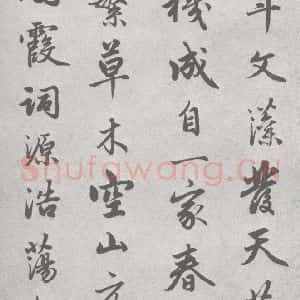 斗文藻發天
機成自一家春
繁草木空山
霞詞源浩蕩
Shufawang.CN